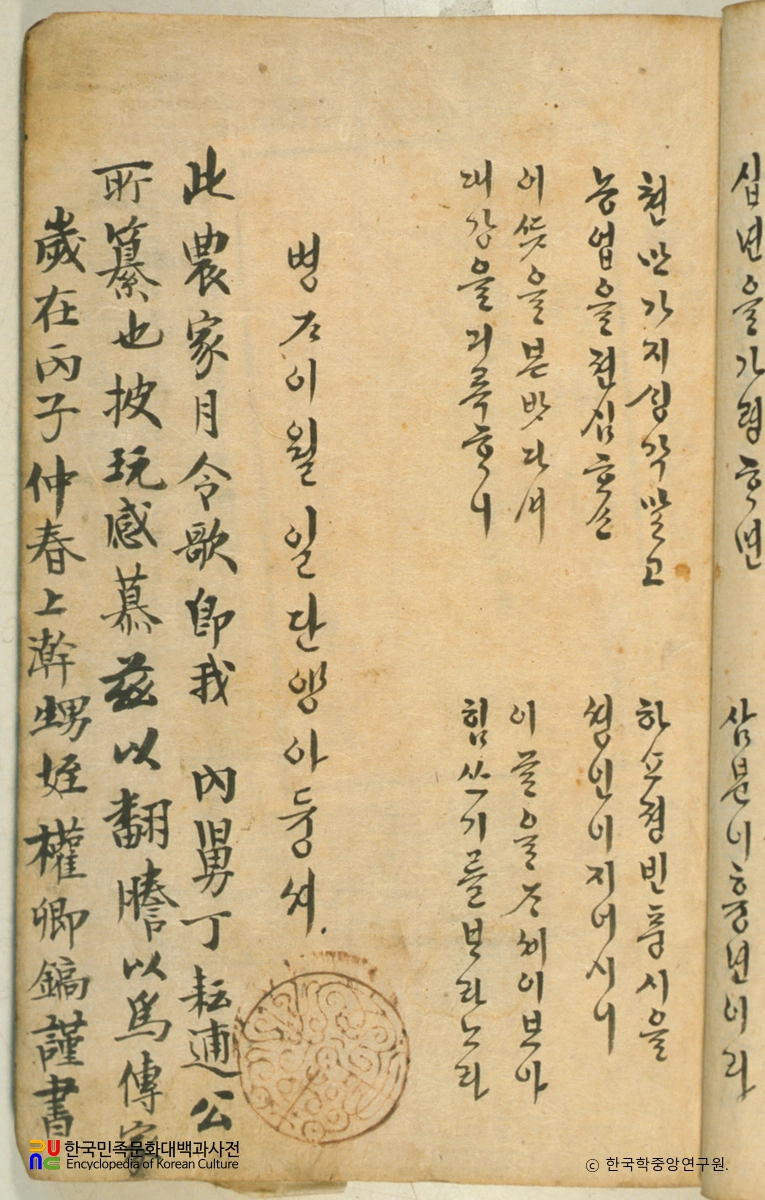 십년을가령ᄒᆞ면 삼분이흉년이라
쳔만가지ᄉᆡᆼ각말고 하쇼졍빈풍시을
농업을젼심ᄒᆞ쇼 셩인이지어시니
이ᄯᅳᆺ을본밧다셔 이글을ᄌᆞ셰이보아
대강을긔록ᄒᆞ니 힘쓰기를ᄇᆞ라노라
병ᄌᆞ이월일단양아듕셔.
此農家月令歌卽我 內舅丁耘逋公
所纂也披玩感慕玆以翻謄以爲傳家
歲在丙子仲春上澣甥姪權卿鎬謹書
한국민족문화대백과사전
Encyclopedia of Korean Culture
© 한국학중앙연구원.